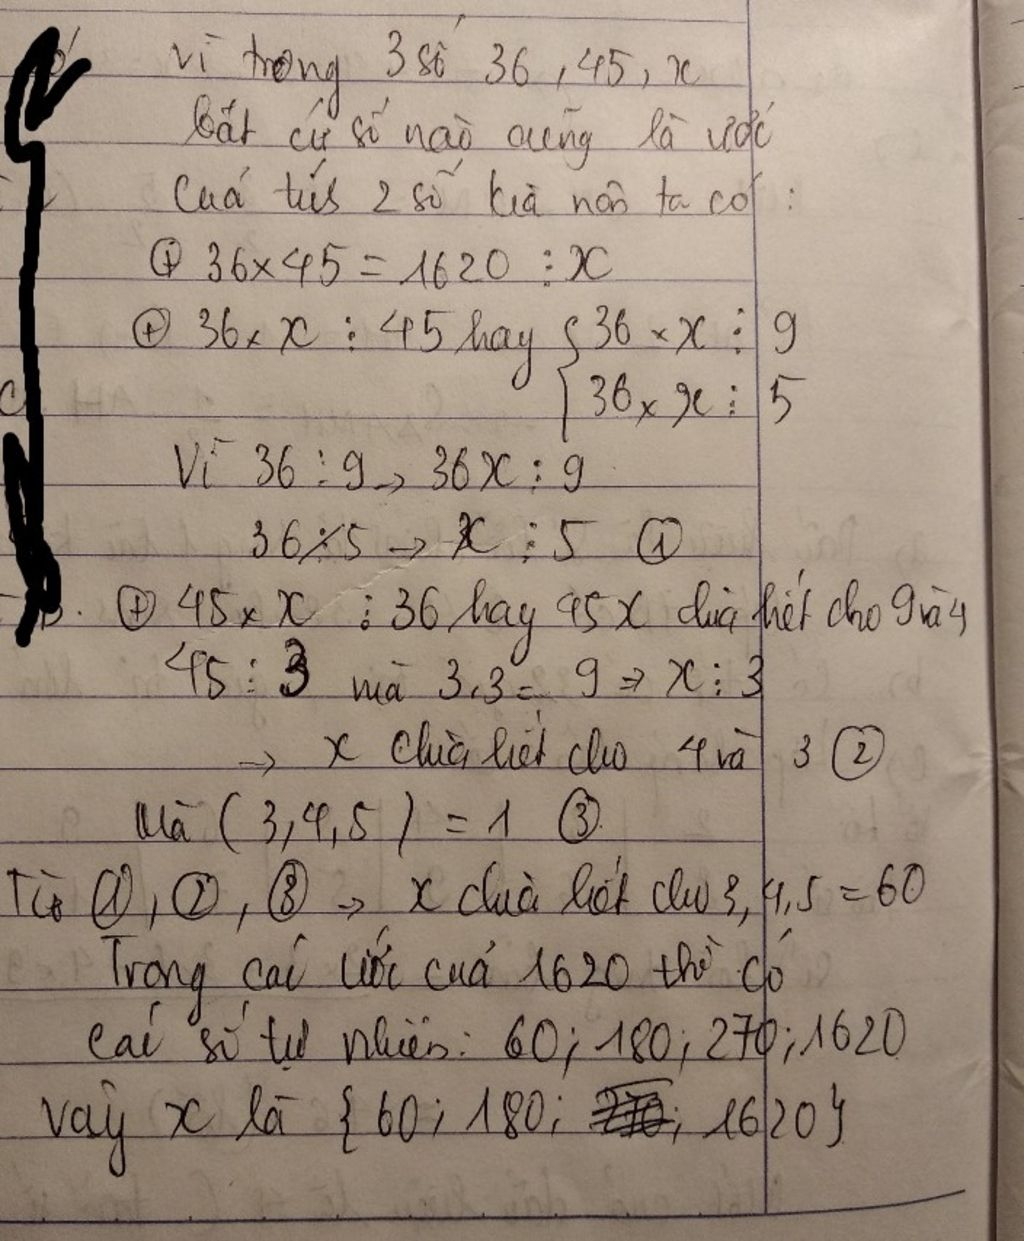 Vì trong 3 số 36, 45, x
bất cứ số nào cũng là ước
cuả tích 2 số kia nên ta có:
⊕ 36 × 45 = 1620 ⋮ x
⊕ 36 × x ⋮ 45 hay { 36 × x ⋮ 9
{ 36 × x ⋮ 5
Vì 36 ⋮ 9 → 36x ⋮ 9
36 ⋮̸ 5 → x ⋮ 5 ①
⊕ 45 × x ⋮ 36 hay 45x chia hết cho 9 và 4
45 ⋮ 3 mà 3.3 = 9 ⇒ x ⋮ 3
→ x chia hết cho 4 và 3 ②
Mà (3, 4, 5) = 1 ③
Từ ①, ②, ③ → x chia hết cho 3, 4, 5 = 60
Trong các ước cuả 1620 thì có
các số tự nhiên: 60; 180; 270; 1620
Vậy x là {60; 180; 1620}